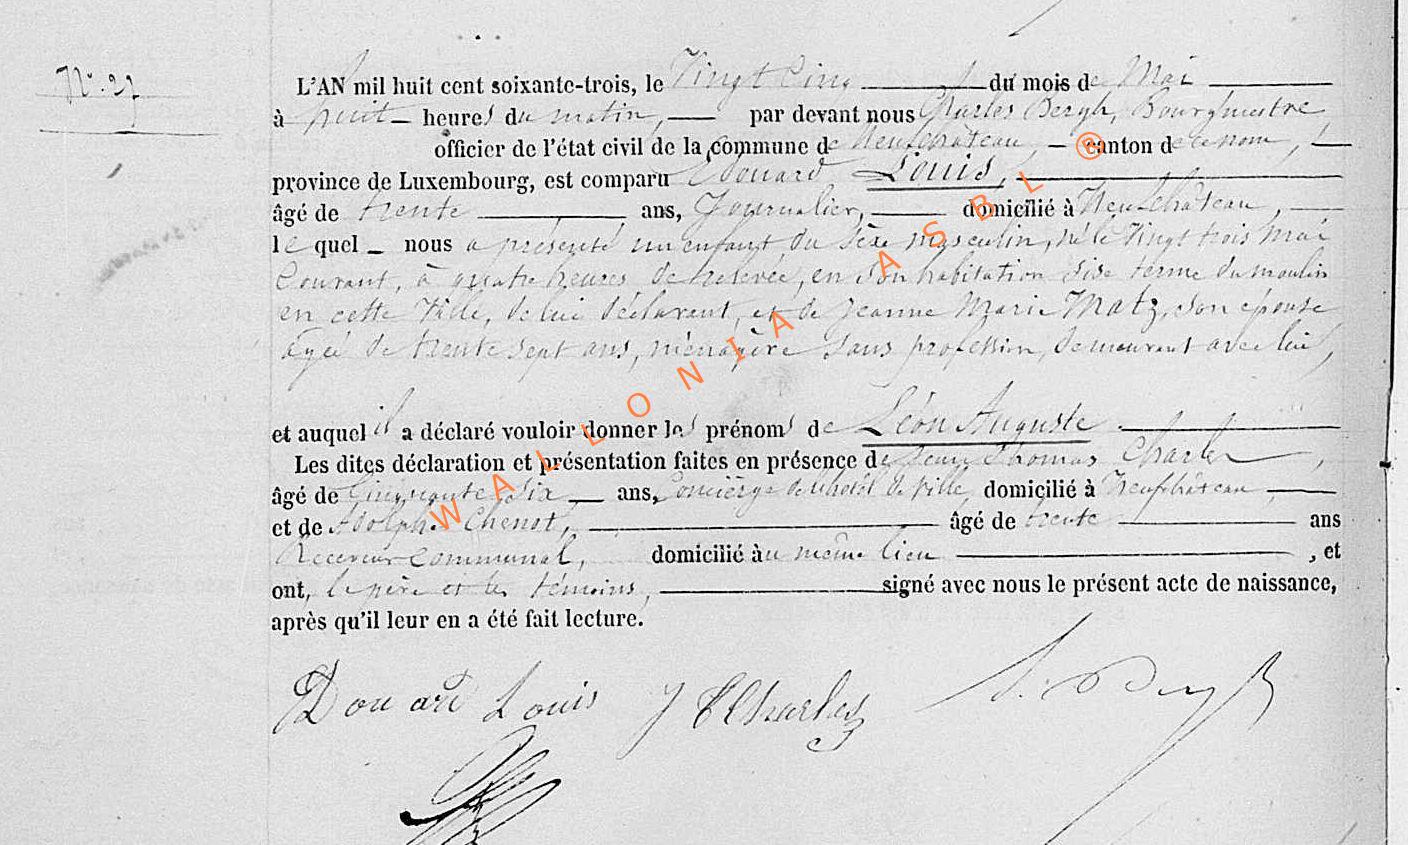 N° 27
L'AN mil huit cent soixante-trois, le Vingt Cinq du mois de Mai
à huit heures du matin, par devant nous Charles Bergh, Bourgmestre
officier de l'état civil de la commune de Neufchâteau, canton de ce nom,
province de Luxembourg, est comparu Edouard Louis,
âgé de trente ans, Journalier, domicilié à Neufchâteau,
lequel nous a présenté un enfant du sexe masculin, né le Vingt trois Mai
Courant, à quatre heures de relevée, en son habitation sise terme du moulin
en cette Ville, de lui déclarant, et de Jeanne Marie Matz, son épouse
agée de trente sept ans, ménagère sans profession, demeurant avec lui,
et auquel il a déclaré vouloir donner les prénoms de Léon Auguste
Les dites déclaration et présentation faites en présence de Jean Thomas Charles,
âgé de Cinquante Six ans, Concierge de l'hôtel de Ville, domicilié à Neufchâteau
et de Adolphe Chenot, âgé de trente ans
Receveur communal, domicilié au même lieu, et
ont, le père et les témoins, signé avec nous le présent acte de naissance,
après qu'il leur en a été fait lecture.
Douard Louis J T Charles
WALLONIA ASBL ®